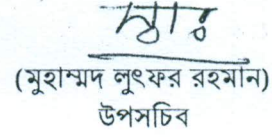 স্বাঃ
(মুহাম্মদ লুৎফর রহমান)
উপসচিব